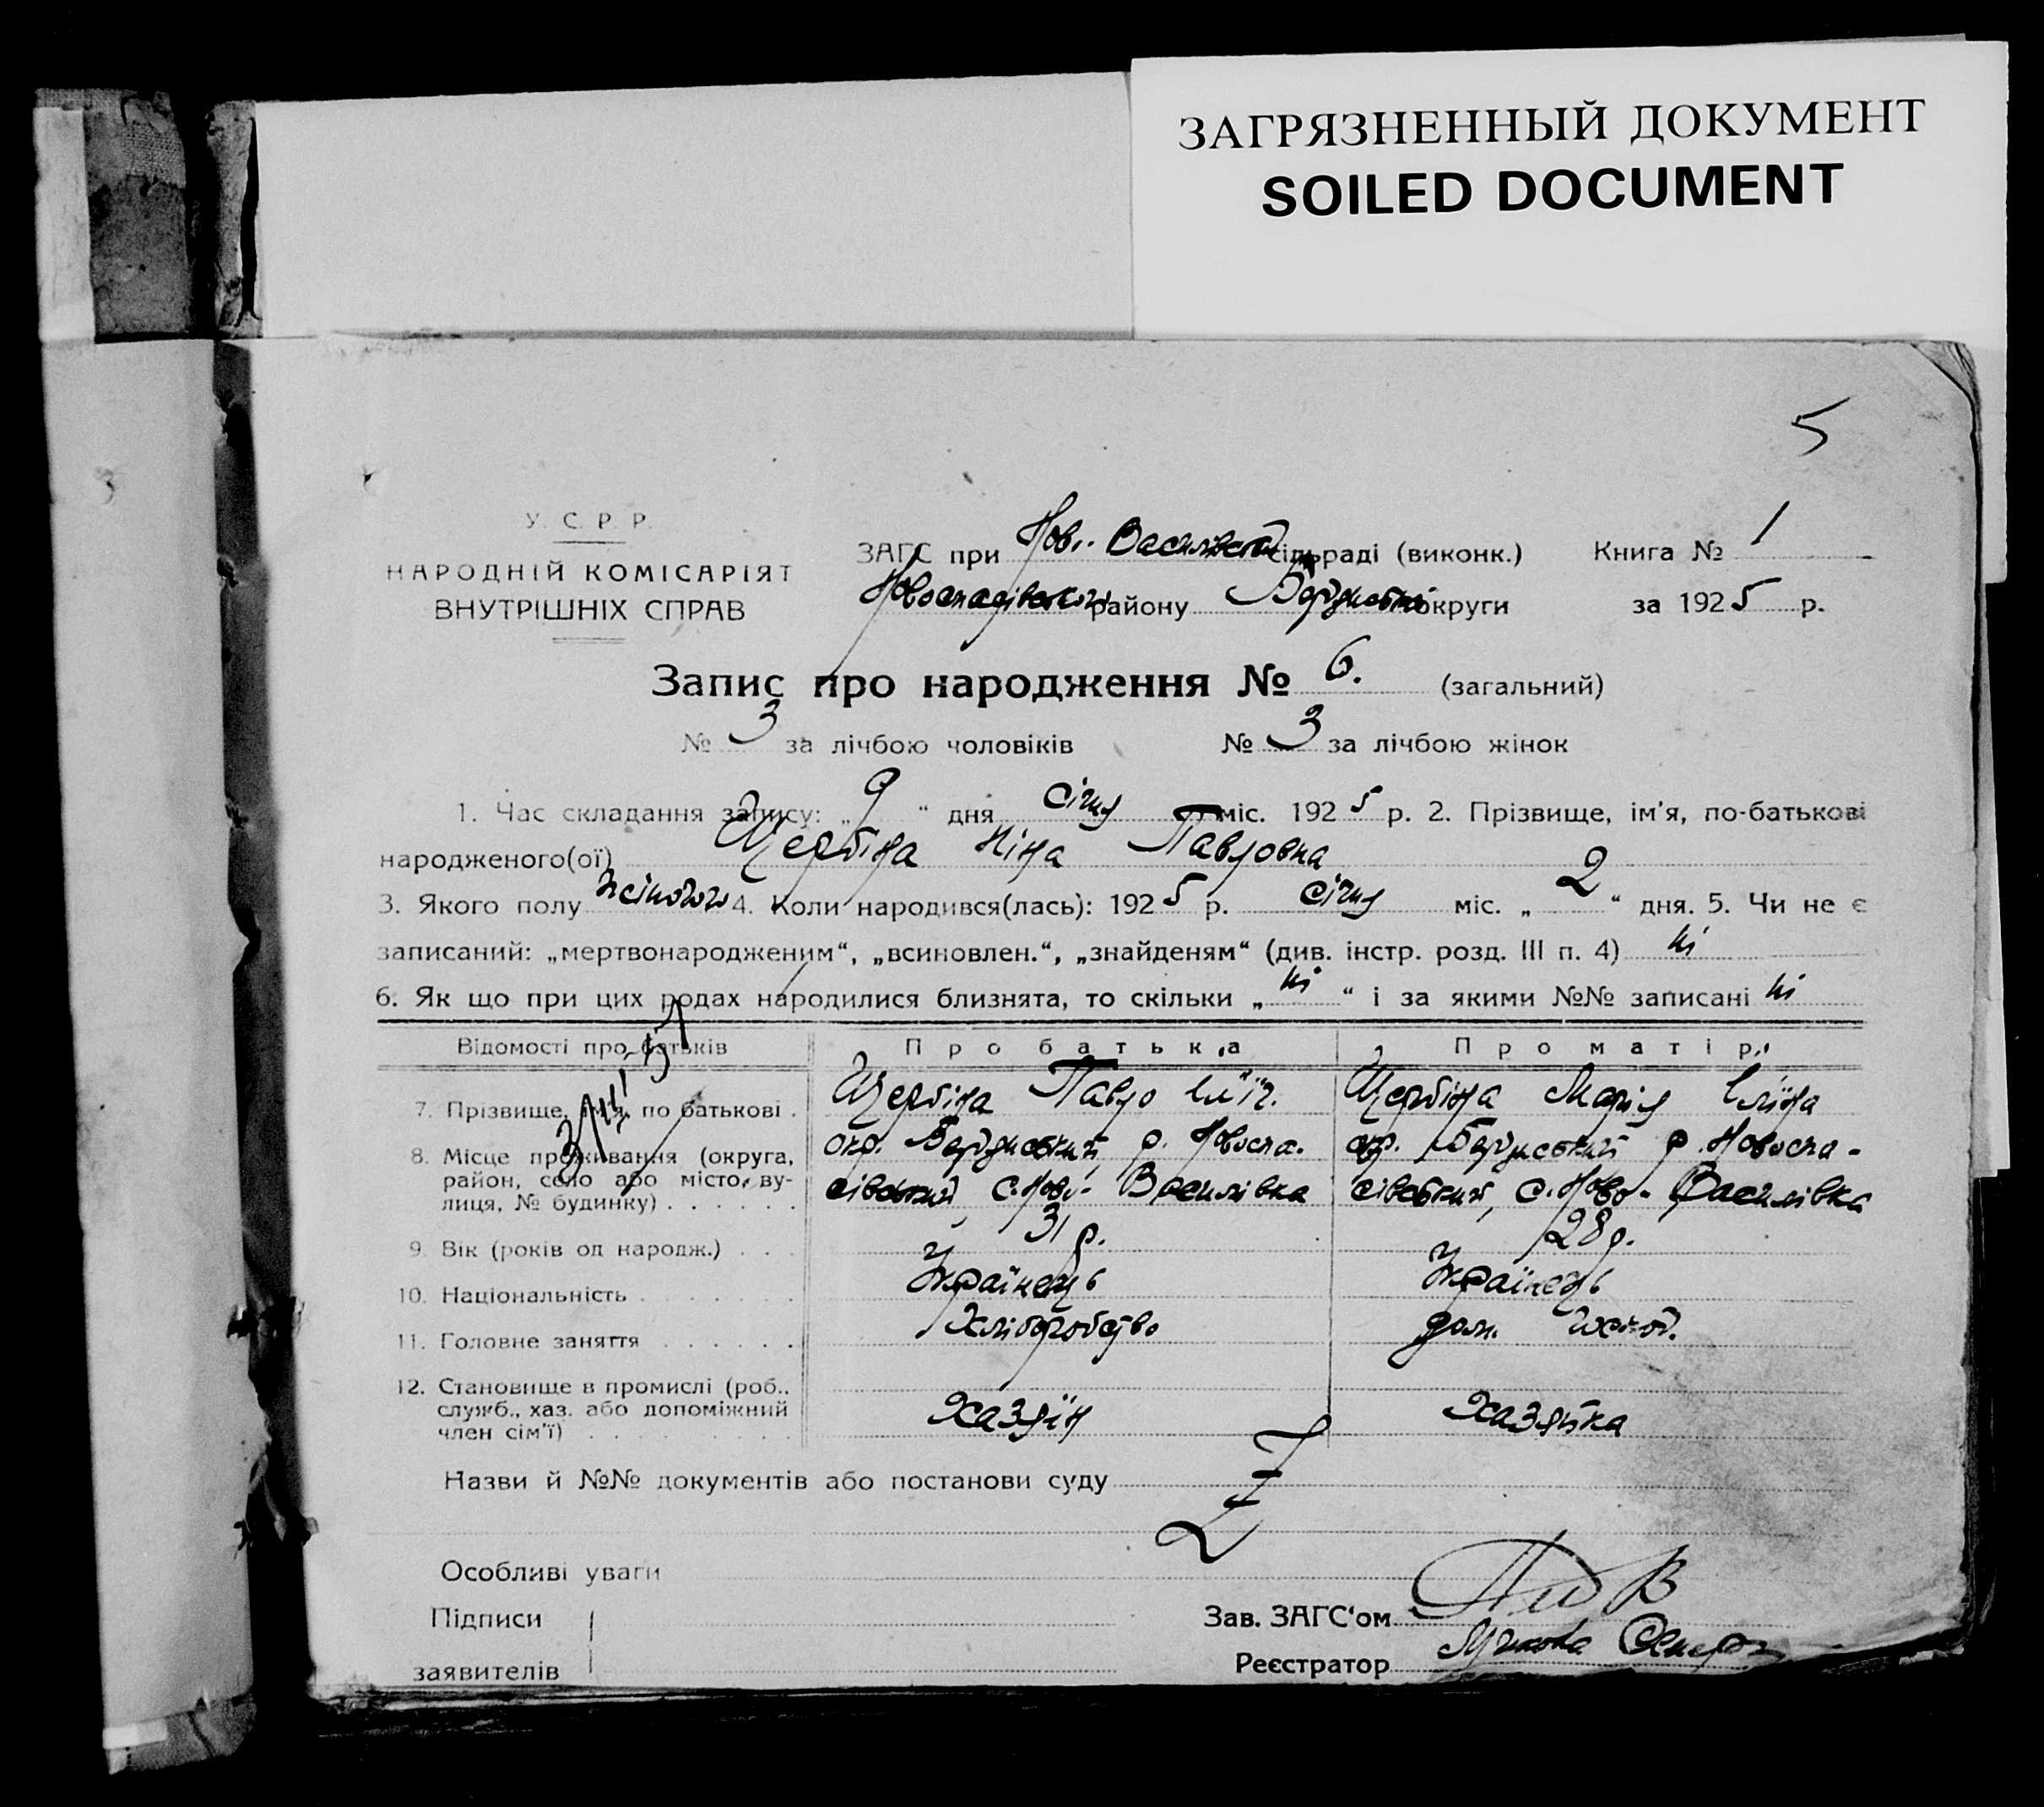 ЗАГРЯЗНЕННЫЙ ДОКУМЕНТ
SOILED DOCUMENT
5
У. С. Р. Р.
НАРОДНІЙ КОМІСАРІЯТ
ВНУТРІШНІХ СПРАВ
ЗАГС при Нов.-Василівській сільраді (виконк.) Книга № 1
Новоспасівського району Бердянської округи за 1925 р.
Запис про народження № 6. (загальний)
№ 3 за лічбою чоловіків № 3 за лічбою жінок
1. Час складання запису: „9“ дня січня міс. 1925 р. 2. Прізвище, ім'я, по-батькові
народженого(ої) Щербіна Ніна Павловна
3. Якого полу жіночого 4. Коли народився(лась): 1925 р. січня міс. „2“ дня. 5. Чи не є
записаний: „мертвонародженим“, „всиновлен.“, „знайденям“ (див. інстр. розд. III п. 4) ні
6. Як що при цих родах народилися близнята, то скільки „ні“ і за якими №№ записані ні
Відомості про батьків Про батька Про матір
7. Прізвище, ім'я, по батькові . Щербіна Павло Ілліч. Щербіна Марія Іллівна
8. Місце проживання (округа, район, село або місто, вулиця, № будинку) . . . . . . окр. Бердянський, р. Новоспа-
сівський, с. Ново-Василівка окр. Бердянський р. Новоспа-
сівський, с. Ново-Василівка
9. Вік (років од народж.) . . . 31 р. 28 р.
10. Національність . . . . . . . Українець Українець
11. Головне заняття . . . . . . Хліборобство дом. господ.
12. Становище в промислі (роб., служб., хаз. або допоміжний член сім'ї) . . . . . . . . . Хазяїн Хазяйка
Назви й №№ документів або постанови суду
Особливі уваги
Підписи
заявителів
Зав. ЗАГС'ом
Реєстратор